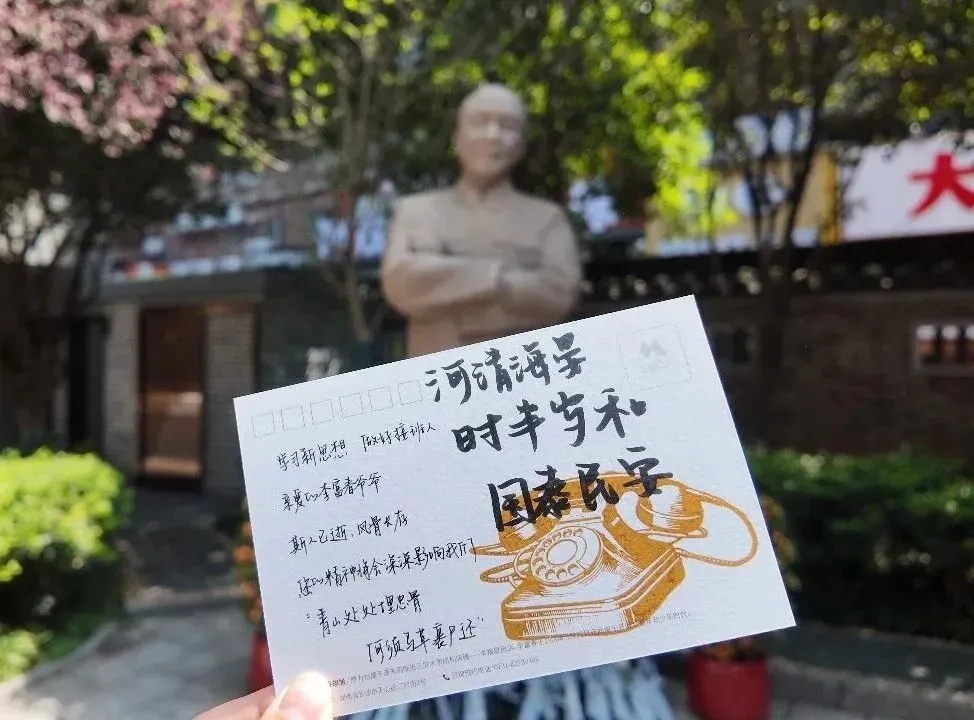 河清海晏
时丰岁和
国泰民安
学习新思想 做好接班人
亲爱的李富春爷爷
斯人已逝，风骨长存
您的精神将会深深影响我们
“青山处处埋忠骨
何须马革裹尸还”
大